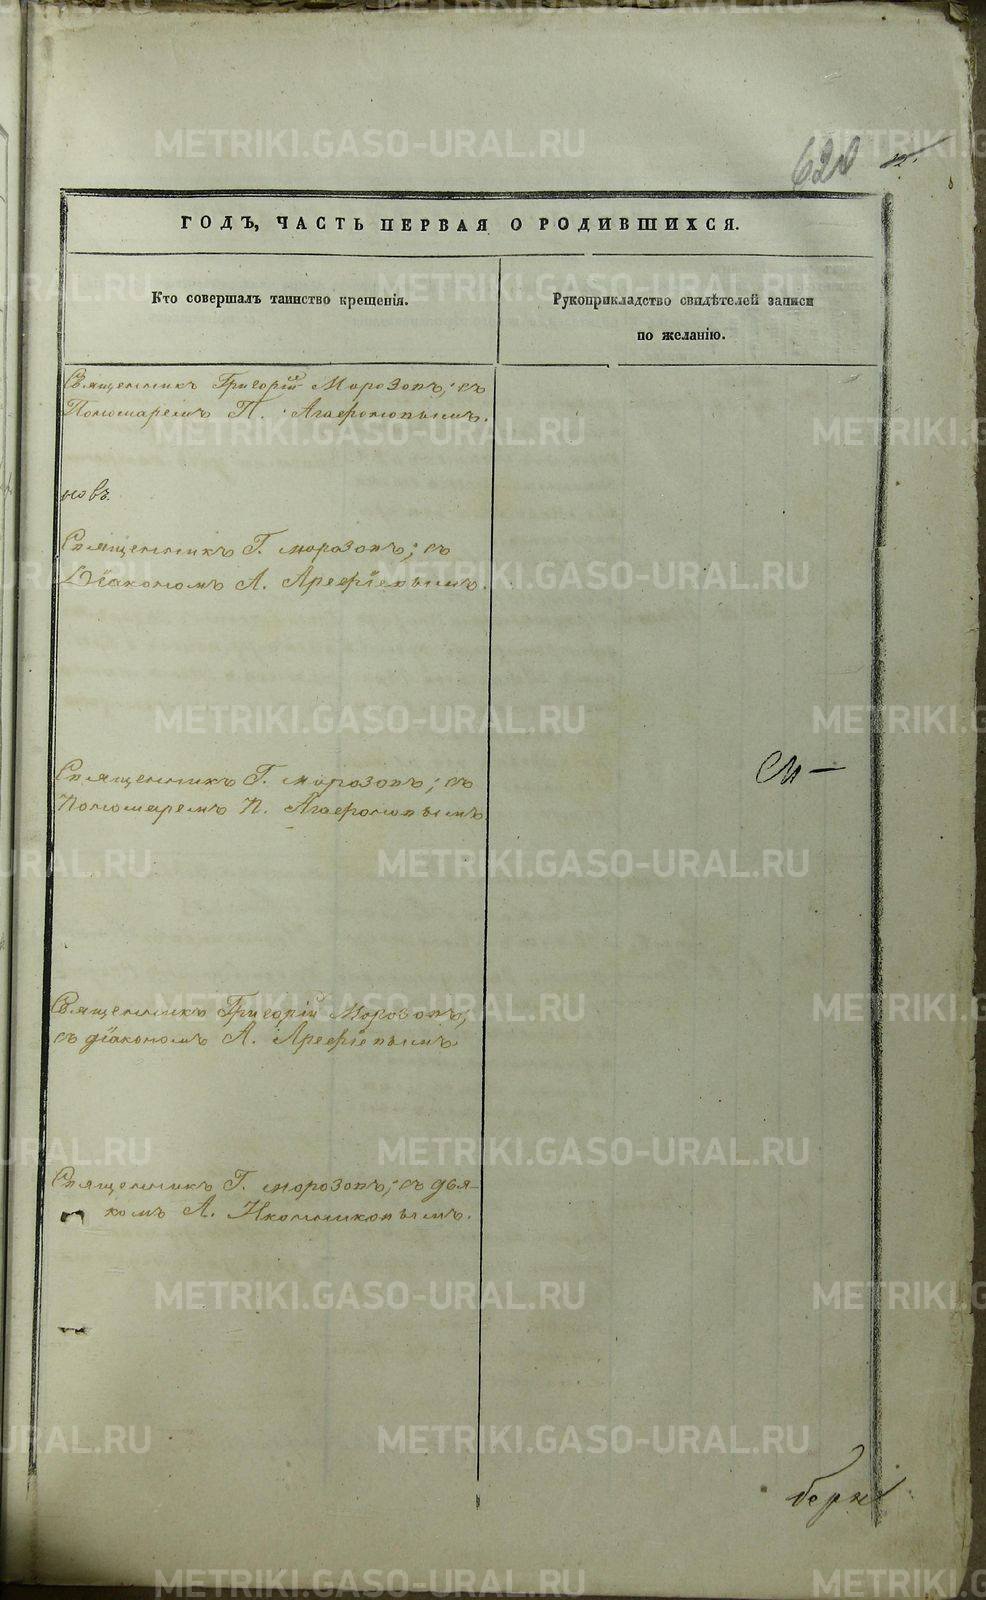 620
ГОДЪ, ЧАСТЬ ПЕРВАЯ О РОДИВШИХСЯ.
Кто совершалъ таинство крещенія.
Рукоприкладство свидѣтелей записи
по желанію.
Священникъ Григорій Морозовъ; съ
Пономаремъ П. Агафоновымъ.
новъ.
Священникъ Г. Морозовъ; съ
Діакономъ А. Арефіевымъ.
Священникъ Г. Морозовъ; съ
Пономаремъ П. Агафоновымъ
см
Священникъ Григорій Морозовъ,
съ діакономъ А. Арефіевымъ.
Священникъ Г. Морозовъ; съ дья-
комъ А. Иконниковымъ.
METRIKI.GASO-URAL.RU